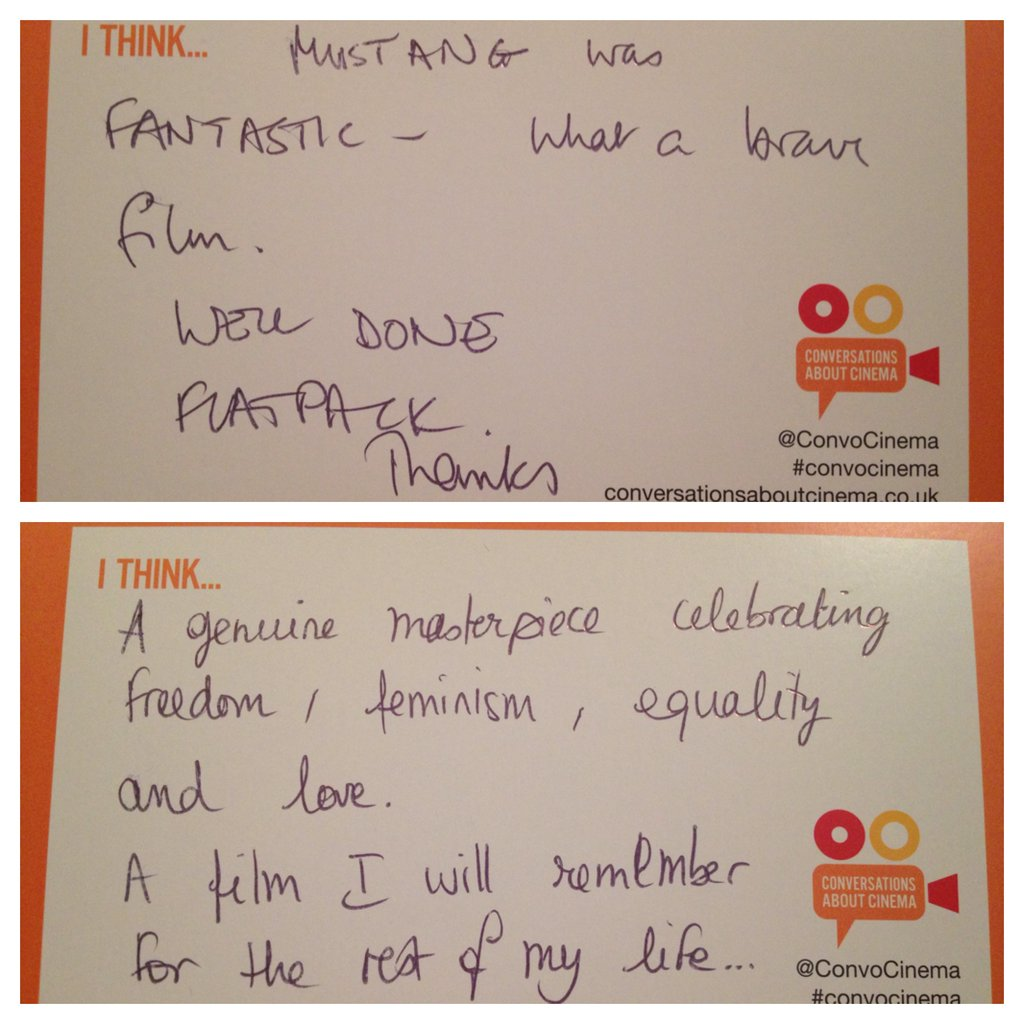 I THINK... MUSTANG was
FANTASTIC - what a brave
film.
WELL DONE
FLATPACK.
Thanks
CONVERSATIONS
ABOUT CINEMA
@ConvoCinema
#convocinema
conversationsaboutcinema.co.uk
I THINK...
A genuine masterpiece celebrating
freedom, feminism, equality
and love.
A film I will remember
for the rest of my life...
CONVERSATIONS
ABOUT CINEMA
@ConvoCinema
#convocinema